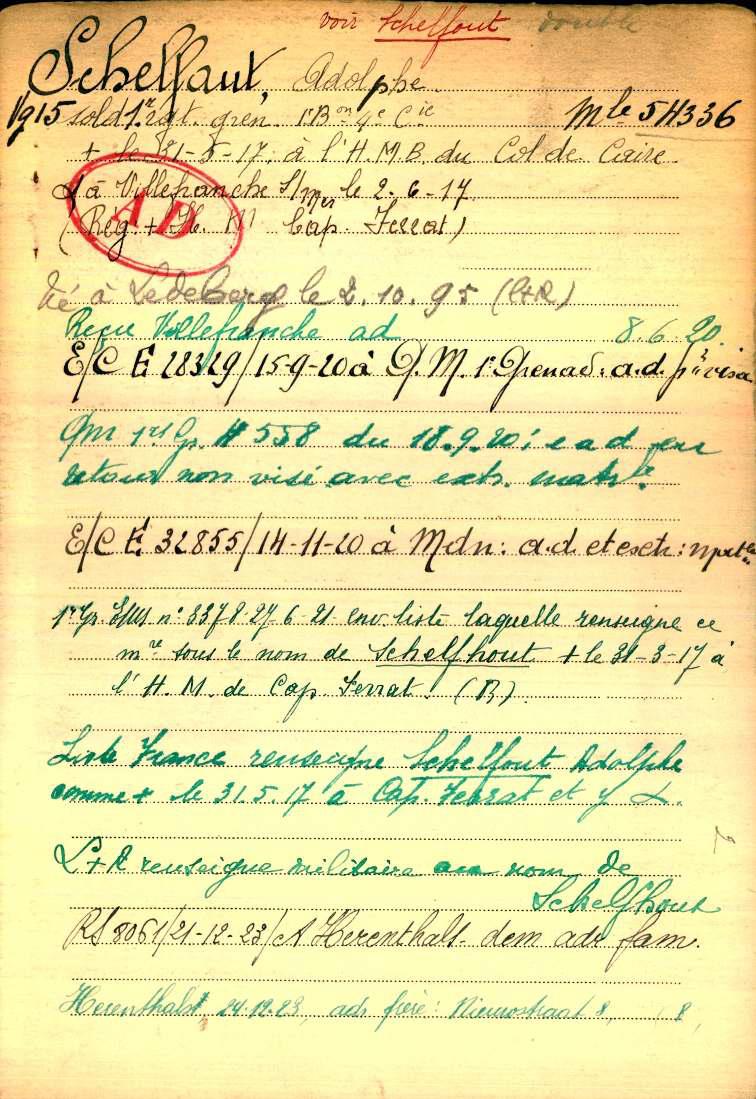 voir Schelfout double
Schelfaut, Adolphe
Vg 15 sold 1r rgt. gren. 1r Bon 4e Cie Mle 54336
+ le 31-5-17. à l'H.M.B. du Col de Caire
à Villefranche S/Mer le 2-6-17
(Reg. + H. M Cap. Ferrat)
AD
Né à Lédeberg le 2.10.95 (L+R)
Reçu Villefranche ad 8.6.20.
E/C E 28329/15-9-20 à Q.M. 1r Grenad. a.d. pr visa
QM 1er G. N 558 du 18.9.20: e a d en
retour non visé avec extr. matrle.
E/C E 32855/14-11-20 à Mdn: a.d et extr: matle
1er Gr n° 3378-27-6-21 env. liste laquelle renseigne ce
mre sous le nom de Schelfhout + le 31-3-17 à
l'H.M. de Cap Ferrat. (B).
Liste France renseigne Schelfout Adolphe
comme + le 31.5.17 à Cap. Ferrat et y
L+R renseigne militaire au nom de
Schelfhout
RS 8061/21-12-23/A Herenthals dem adr fam.
Herenthals, 24.12.23, adr frère: Nieuwstraat 8,